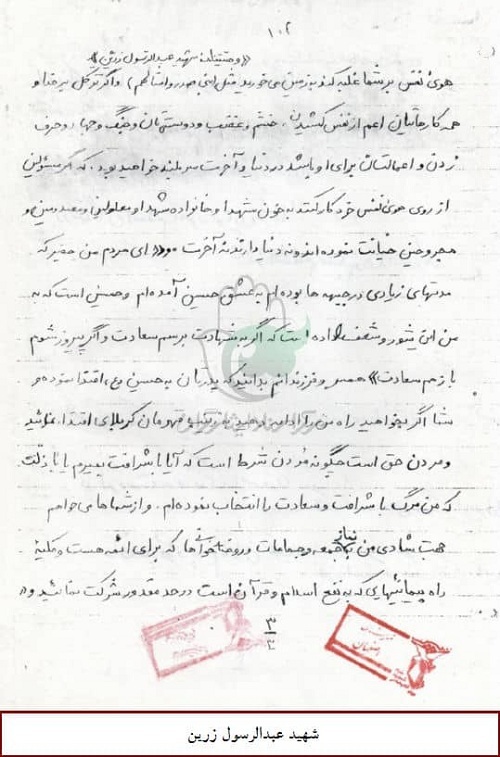 ۱۰۲
«وصیتنامه شهید عبدالرسول زرین»
هوی نفس بر شما غلبه کند به زمین می خورید مثل بنی صدر و امثالهم) و اگر توکل بر خدا و
همه کارهایتان اعم از نفس کشیدن، خشم و غضب و دوستیهاتان و جنگ و جهاد و حرف
زدن و اعمالتان برای او باشد در دنیا و آخرت سربلند خواهید بود. که اگر مسئولین
از روی هوی نفس خود کار کنند به خون شهدا و خانواده شهدا و معلولین و مصدومین و
مجروحین خیانت نموده اند و نه دنیا دارند نه آخرت «ای مردم من حقیر که
مدتهای زیادی در جبهه ها بوده ام به عشق حسین آمده ام و حسین است که به
من این شور و شعف داده است که اگر به شهادت برسم سعادت و اگر پیروز شوم
باز هم سعادت» همسر و فرزندانم بدانید که پدرتان به حسین (ع) اقتدا نموده و
شما اگر بخواهید راه من را ادامه دهید به قهرمان کربلای اقتدا نمائید
و مردن حق است چگونه مردن شرط است که آیا با شرافت بمیرم یا با ذلت
که من مرگ با شرافت و سعادت را انتخاب نموده ام. و از شماها می خواهم
جهت شادی من به نماز جمعه و جماعات و روضه خوانی ها که برای ائمه هست و کلیه
راه پیمائیهای که به نفع اسلام و قرآن است در حد مقدور شرکت نمائید و
۳
۳
شهید عبدالرسول زرین